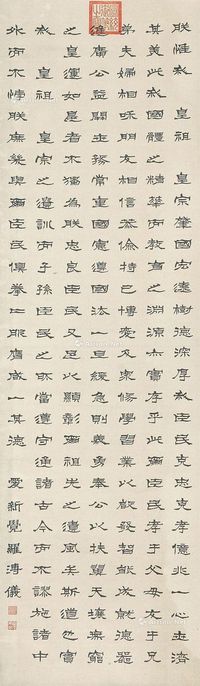 朕惟我 皇祖 皇宗肇國宏遠樹德深厚我臣民克忠克孝億兆一心世濟
其美此我國體之精華而教育之淵源亦實存乎此爾臣民孝于父母友于兄
弟夫婦相和朋友相信恭儉持己博愛及眾修學習業以啟發智能成就德器
進廣公益開世務常重國憲遵國法一旦緩急則義勇奉公以扶翼天壤無窮
之皇運如是者不獨為朕忠良臣民又足以顯彰爾祖先之遺風矣斯道也實
我 皇祖 皇宗之遺訓而子孫臣民之所當遵守通諸古今而不謬施諸中
外而不悖朕庶幾與爾臣民俱拳拳服膺咸一其德 愛新覺羅溥儀